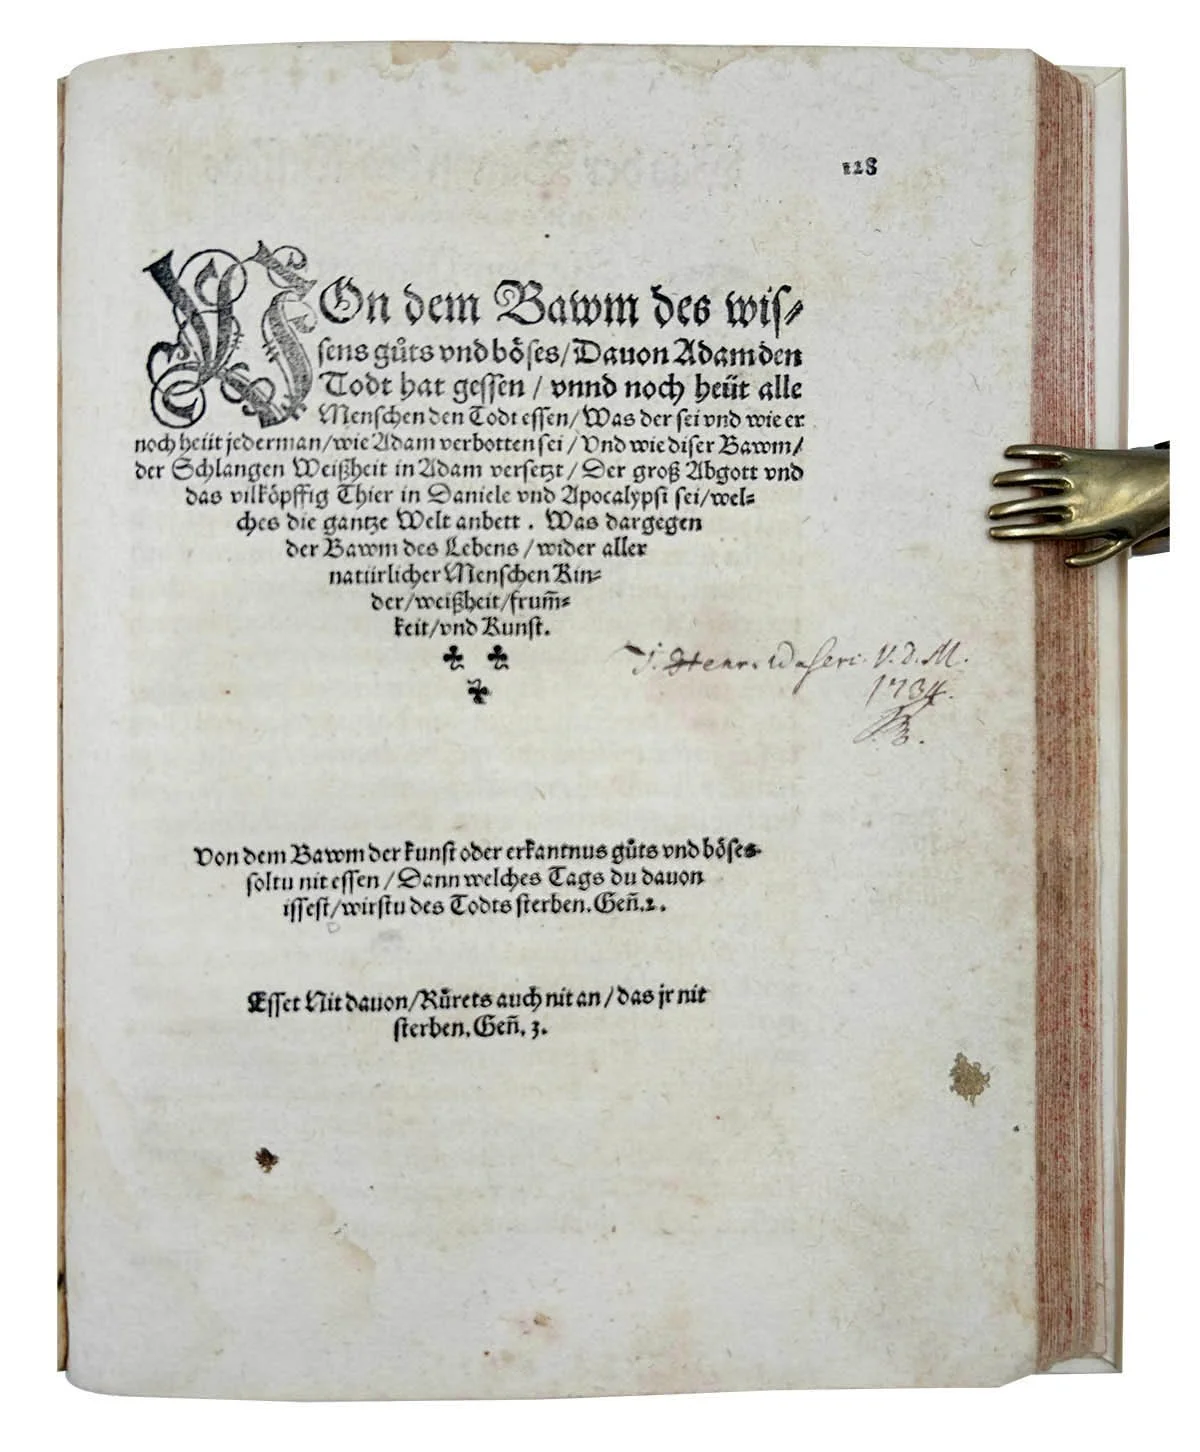 128
VOn dem Bawm des wis⸗
sens gůts vnd bőses/ Dauon Adam den
Todt hat gessen / vnnd noch heüt alle
Menschen den Todt essen/ Was der sei vnd wie er
noch heüt jederman/wie Adam verbotten sei / Vnd wie diser Bawm/
der Schlangen Weißheit in Adam versetzt / Der groß Abgott vnd
das vilköpffig Thier in Daniele vnd Apocalypsi sei/wel⸗
ches die gantze Welt anbett . Was dargegen
der Bawm des Lebens / wider aller
natürlicher Menschen Kin⸗
der/weißheit/frum̃⸗
keit/vnd Kunst.
J. Henr. Waseri. V. D. M.
1734.
Von dem Bawm der kunst oder erkantnus gůts vnd bőses
soltu nit essen / Dann welches Tags du dauon
issest/wirstu des Todts sterben. Geñ.2.
Esset Nit dauon/Růrets auch nit an / das jr nit
sterben. Geñ. 3.